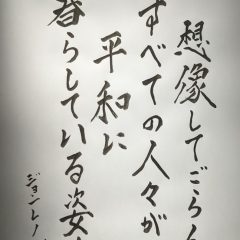 想像してごらん
すべての人々が
平和に
暮らしている姿を
ジョンレノ